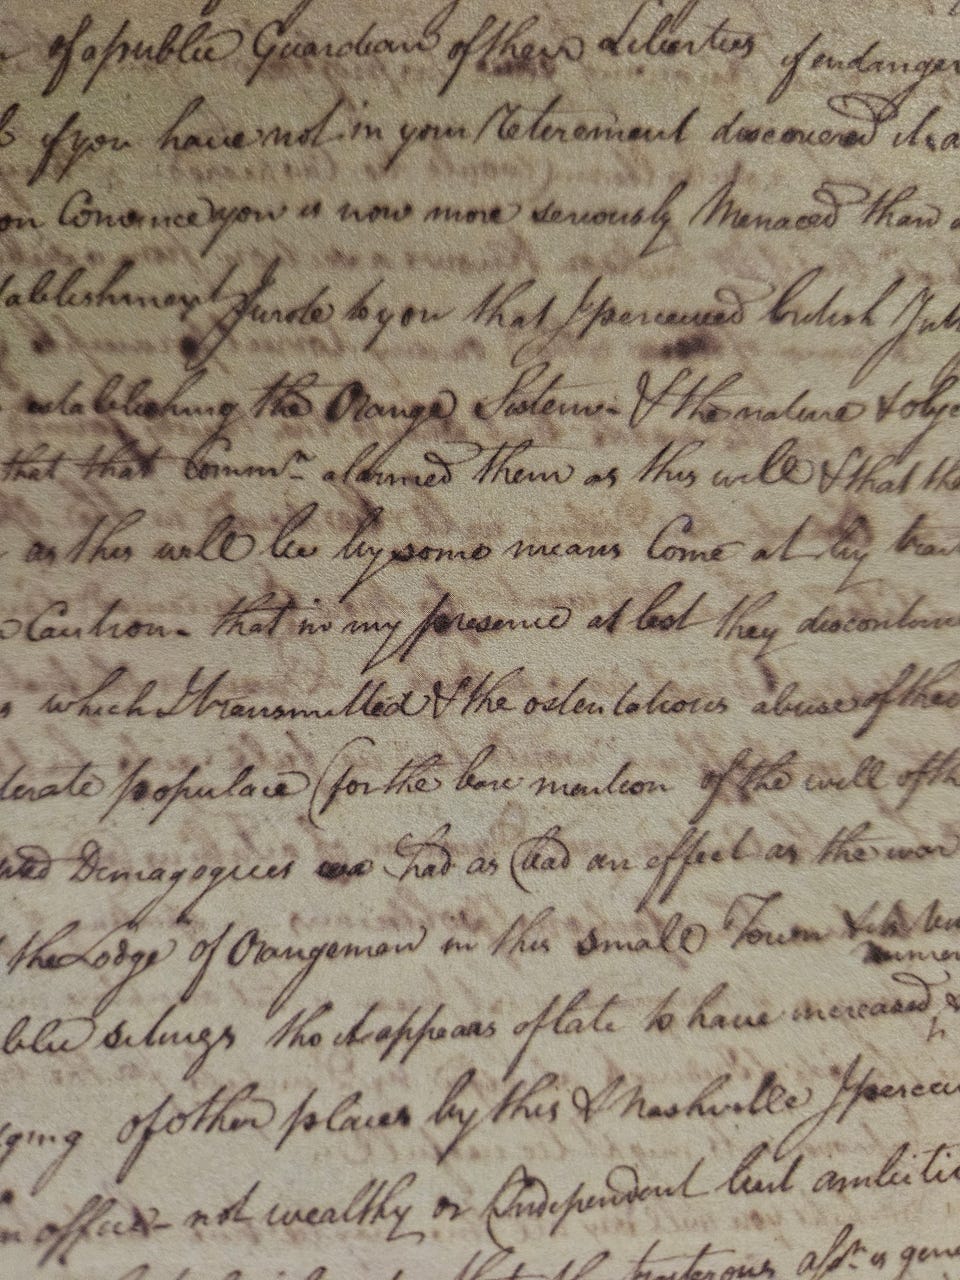 of a public Guardian of their Liberties if endanger
if you have not in your Reterement discovered it
on Convince you is now more seriously Menaced than
tablishment I wrote to you that I perceived british
establishing the Orange Sistem & the nature & obje
that that Commn alarmed them as this will & that the
as this will be by some means Come at by
Caution that in my presence at lest they discontinu
s which I transmitted & the ostentatious abuse of thei
derate populace (for the bare mention of the will of th
Demagogues had as bad an effect as the
the Lodge of Orangemen in this small Town &
blic sitings tho it appears of late to have increased &
ging of other places by this & Nashville I percei
office - not wealthy or Independent but ambiti
that the traiterous is